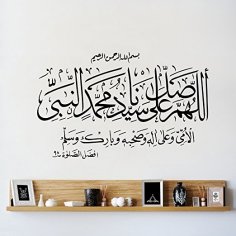 بسم الله الرحمن الرحيم
اللهم صل على سيدنا محمد النبي
الأمي وعلى آله وصحبه وبارك وسلم
أفضل الصلوة